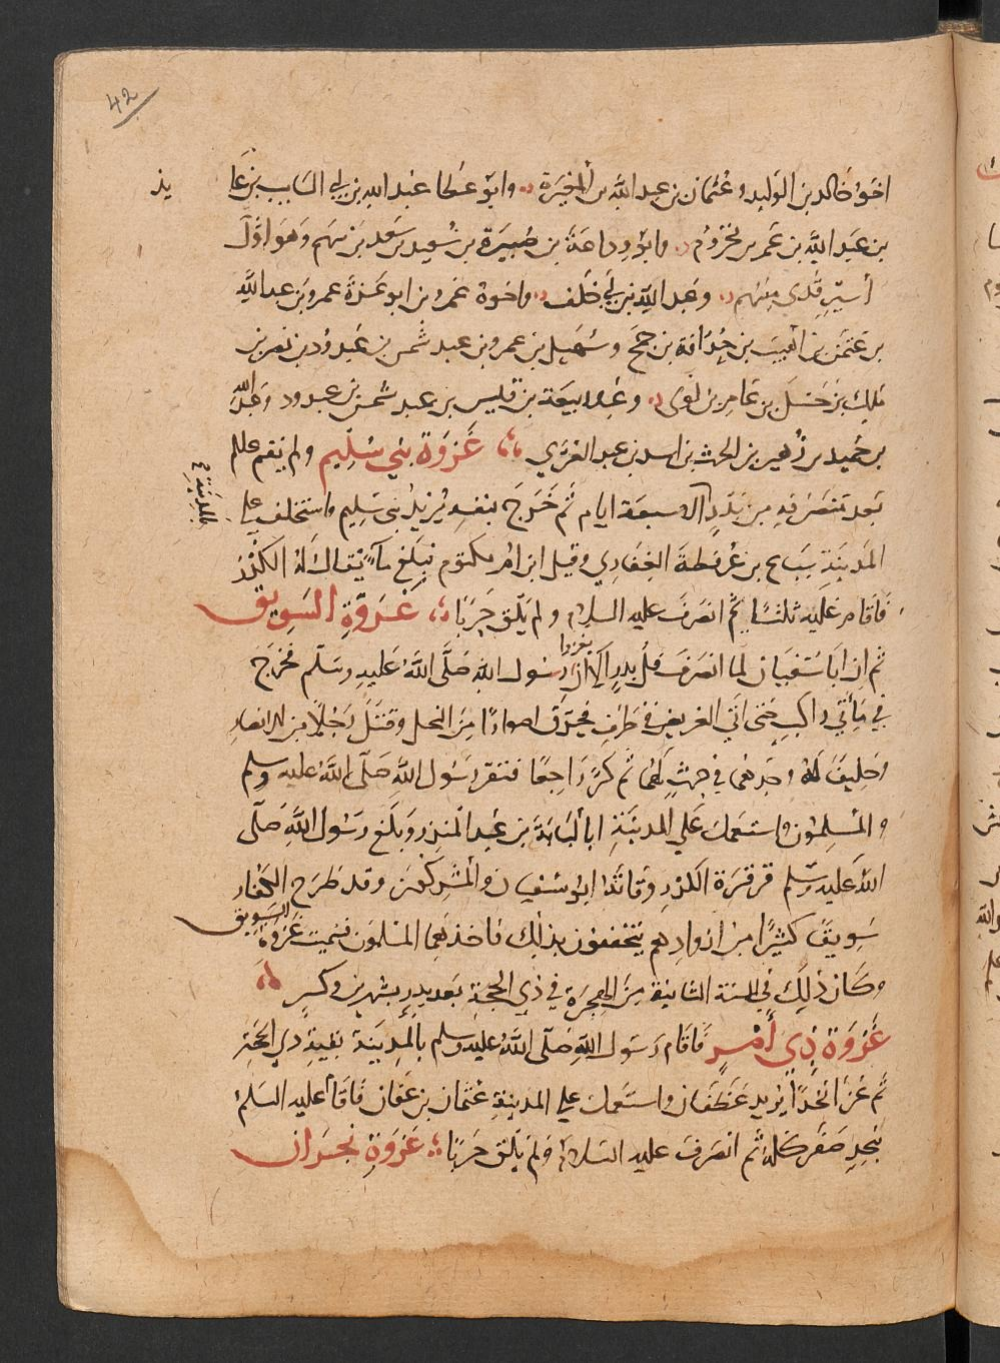 42
اخو خالد بن الوليد وعثمان بن عبد الله بن المغيرة وابو عطا عبد الله بن ابي السايب بن عا
يذ
بن عبد الله بن عمر بن مخزوم وابو وداعة بن ضبيرة بن سعيد بن سعد بن سهم وهو اول
أسير فدي منهم وعبد الله بن ابي خلف واخوه عمرو بن ابو عزة عمرو بن عبد الله
بن عثمن بن اهيب بن حذافة بن جمح وسهيل بن عمرو بن عبد شمس بن عبد ود بن نصر بن
ملك بن حسل بن عامر بن لوى وعبد بن زمعة بن قيس بن عبد شمس بن عبد ود وعبد الله
بن حميد بن زهير بن الحرث بن اسد بن عبد العزي غزوة بني سليم ولم يقم عللم
بالمدينة
بعد منصرفه من بدر الا سبعة ايام ثم خرج بنفسه يريد بني سليم واستخلف علي
المدينة سباع بن عرفطة الغفاري وقيل ابن ام مكتوم فبلغ ماً يقال له الكدر
فاقام عليه ثلثا ثم انصرف عليه السلام ولم يلق حربا غزوة السويق
ثم ان ابا سفيان لما انصرف فل بدر الا ان يغزوا رسول الله صلى الله عليه وسلم فخرج
في مأتي راكب حتى اتي العريض في طرف فحرق اصوارا من النخل وقتل رجلا من الانصار
وحليفا له وجدهما في حرث لهما ثم كر راجعا فنفر رسول الله صلى الله عليه وسلم
والمسلمون واستعمل علي المدينة ابا لبابة بن عبد المنذر وبلغ رسول الله صلى
الله عليه وسلم قرقرة الكدر وفاته ابو سفيان والمشركون وقد طرح الكفار
سويقا كثيرا من ازوادهم يتخففون بذلك فاخذهما المسلمون فسميت غزوة السويق
وكان ذلك في السنة الثانية من الهجرة في ذي الحجة بعد بدر بشهرين وكسر
غزوة ذي أمر فاقام رسول الله صلى الله عليه وسلم بالمدينة بقية ذي الحجة
ثم غزا نجدا يريد غطفان واستعمل علي المدينة عثمان بن عفان فاقام عليه السلم
بنجد صفر كله ثم انصرف عليه السلام ولم يلق حربا غزوة نجران